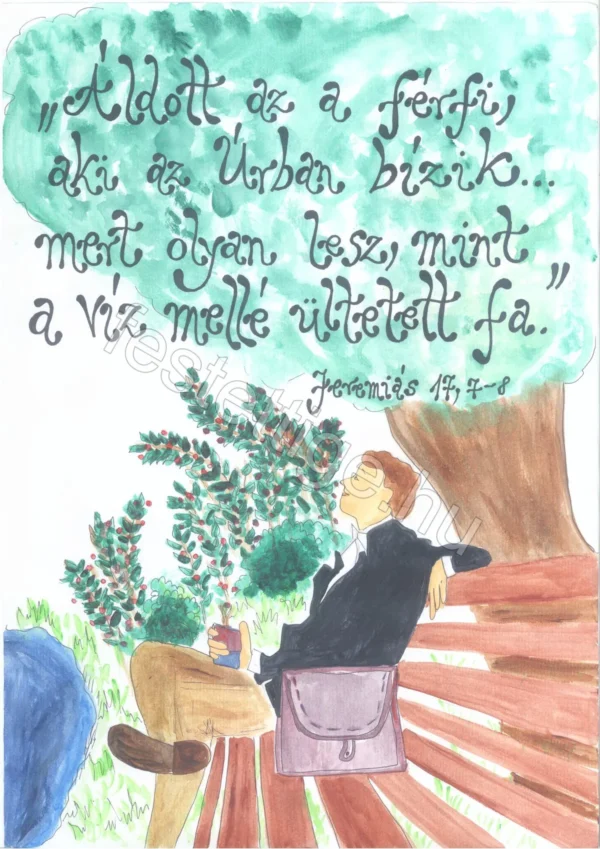 „Áldott az a férfi,
aki az Úrban bízik...
mert olyan lesz, mint
a víz mellé ültetett fa.”
Jeremiás 17, 7-8
festettige.hu